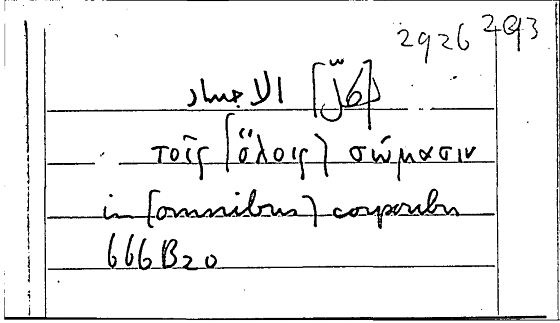 2926 293
[كلّ] الاجساد
τοῖς [ὅλοις] σώμασιν
in [omnibus] corporibus
666B20